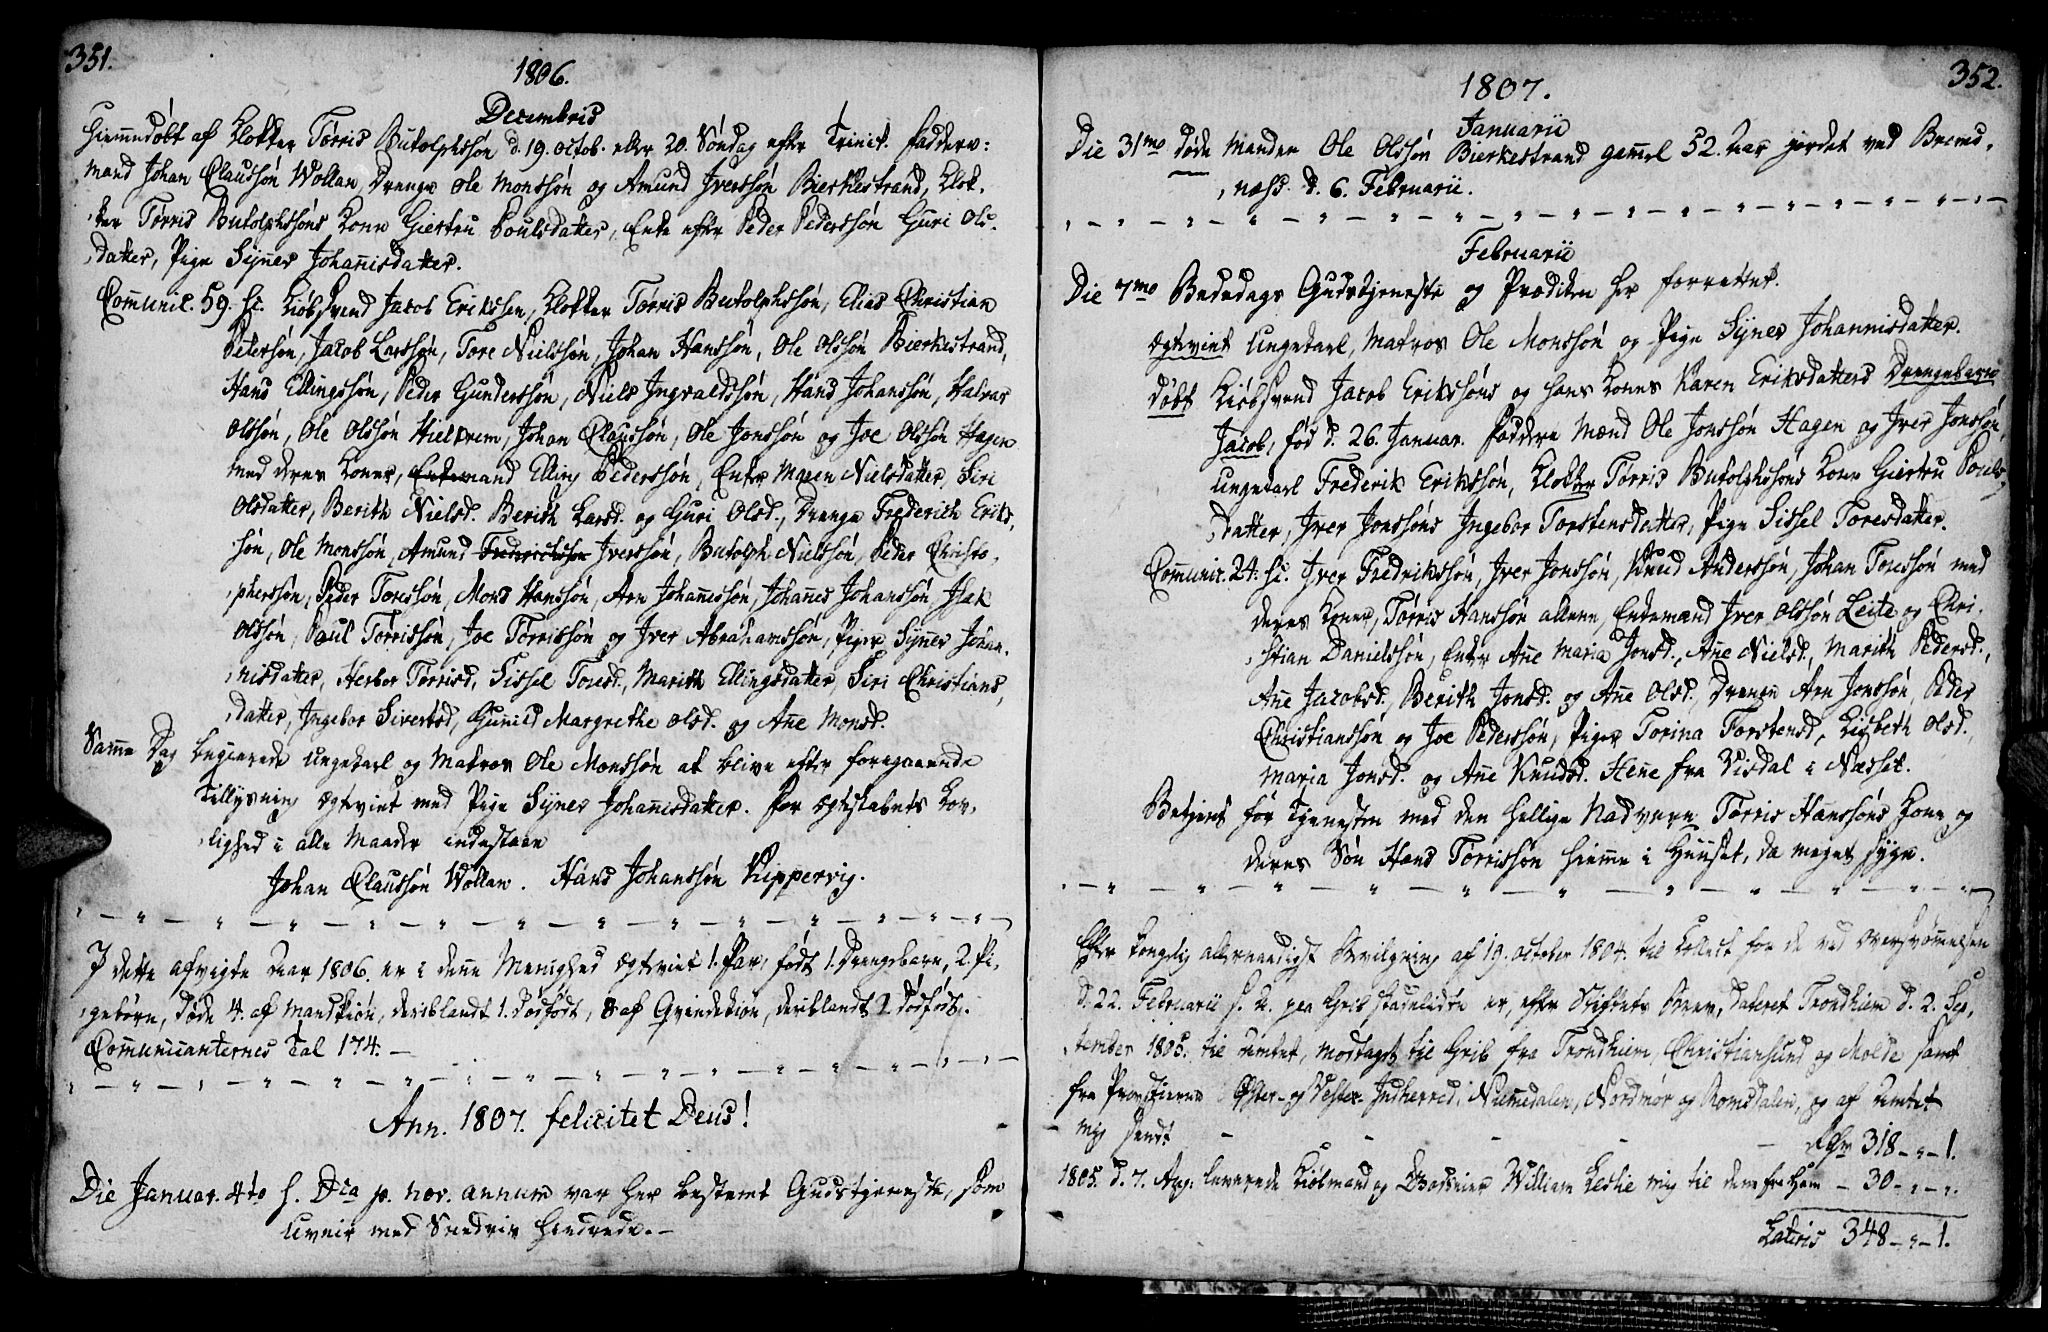 351.
1806.
Decembris
hiemmedöbt af Klokker Törris Butolphssön d. 19. octob. eller 20. Söndag efter Trinit. Faddere:
mand Johan Claussön Wollan, Drenge Ole Monssön og Amund Jverssön Bierkestrand, Klok-
ker Törris Butolphssöns Kone Giertru Poulsdatter, Enke efter Peder Pederssön Guri Ols-
datter, Pige Synev Johannisdatter.
Communic. 59. sc. Kiöbsvend Jacob Erikssen, Klokker Törris Butolphssön, Elias Christian
Petersön, Jacob Larssön, Tore Nielssön, Johan Hanssön, Ole Olssön Bierkestrand,
Hans Ellingssön, Peder Gunderssön, Niels Jngvaldssön, Hans Johanssön, Halvor
Olssön, Ole Olssön Hielkrem, Johan Claussön, Ole Jonssön og Joe Olssön Hagen
med deres Koner, Enkemand Elling Pederssön, Enker Maren Nielsdatter, Siri
Olsdatter, Berith Nielsd. Berith Larsd. og Guri Olsd., Drenge Frederich Eriks-
sön, Ole Monssön, Amund Fredrichsson Jverssön, Butolph Nielssön, Peder Christo-
pherssön, Peder Toressön, Mons Hanssön, Arn Johannessön, Johannes Johanssön, Jsak
Olssön, Paul Törrissön, Joe Törrissön og Jver Abrahamssön, Piger Synev Johan-
nisdatter, Herbor Törrisd, Sissel Toresd., Marith Ellingsdatter, Siri Christians-
datter, Jngebor Sivertsd, Gunild Margrethe Olsd. og Ane Monsd.
Samme Dag begierede ungekarl og Matros Ole Monssön at blive efter foregaaende
Tillysning ægteviet med Pige Synev Johannisdatter. For ægteskabets Lov-
lighed i alle Maader indestaae
Johan Claussön Wollan. Hans Johanssön Kippervig.
J dette afvigte Aar 1806. er i denne Menighed ægteviet 1. Par, födt 1. Drengebarn, 2. Pi-
gebörn, Döde 4. af Mandkiön, deriblandt 1. Dödfödt, 8 af Qvindekiön, deriblandt 2 Dödfödt.
Communicanternes Tal 174. -
Ann. 1807. felicitet Deus!
Die Januar. 4to s. Dca p. nov. annum var her bestemt Gudstjeneste, som
Uveir med Snedriv hindrede. -
352.
1807.
Januarii
Die 31mo döde Manden Ole Olssön Bierkestrand gammel 52. Aar jordet ved Brems-
næss. d. 6. Februarii.
Februarii
Die 7mo Bededags Gudstjeneste og Prædiken her forrettet.
ægteviet Ungekarl, Matros Ole Monssön og Pige Synev Johannisdatter.
döbt Kiöbsvend Jacob Erikssöns og hans Kones Karen Eriksdatters Drengebarn
Jacob, föd d. 26. Januar. Faddere Mænd Ole Jonssön Hagen og Jver Jonssön,
ungekarl Frederik Erikssön, Klokker Törris Butolphssöns Kone Giertru Pouls-
datter, Jver Jonssöns Jngebor Torstensdatter, Pige Sissel Toresdatter.
Communic. 24. sc. Jver Fredrikssön, Jver Jonssön, Knud Anderssön, Johan Toressön med
deres Koner, Törris Hanssön allene, Enkemand Jver Olssön Leite og Chri-
stian Danielssön, Enker Ane Maria Jonsd., Ane Nielsd., Marith Pedersd.,
Ane Jacobsd., Berith Jonsd. og Ane Olsd. Drenge Arn Jonssön, Peder
Christianssön og Joe Pederssön, Piger Torina Torstensd, Lisbeth Olsd.
Maria Jonsd. og Ane Knudsd. Hene fra Visdal i Næsset.
Betjent för Tjenesten med den hellige Nadvere Törris Hanssöns Kone og
deres Sön Hans Törrissön hiemme i Huuset, da meget syge.
Efter Kongelig allernaadigst Bevilgning af 19. october 1804. til Collect for de ved oversvömmelsen
d. 22. Februarii s. A. paa Grib skadelidte er, efter Stiftets Brev, dateret Trondhiem d. 2. Sep-
tember 1805. til Amtet, modtaget til Grib fra Trondhiem, Christiansund og Molde samt
fra Provstierne Öster- og Vester-Jndherred, Nummedalen, Nordmör og Romsdalen, og af Amtet
mig sendt - - - - - Rdr 318 - " - 1.
1805. d. 7. Aug. leverede Kiöbmand og William Leslie mig til dem fra Ham - 30 - " - ".
Lateris 348 - " - 1.